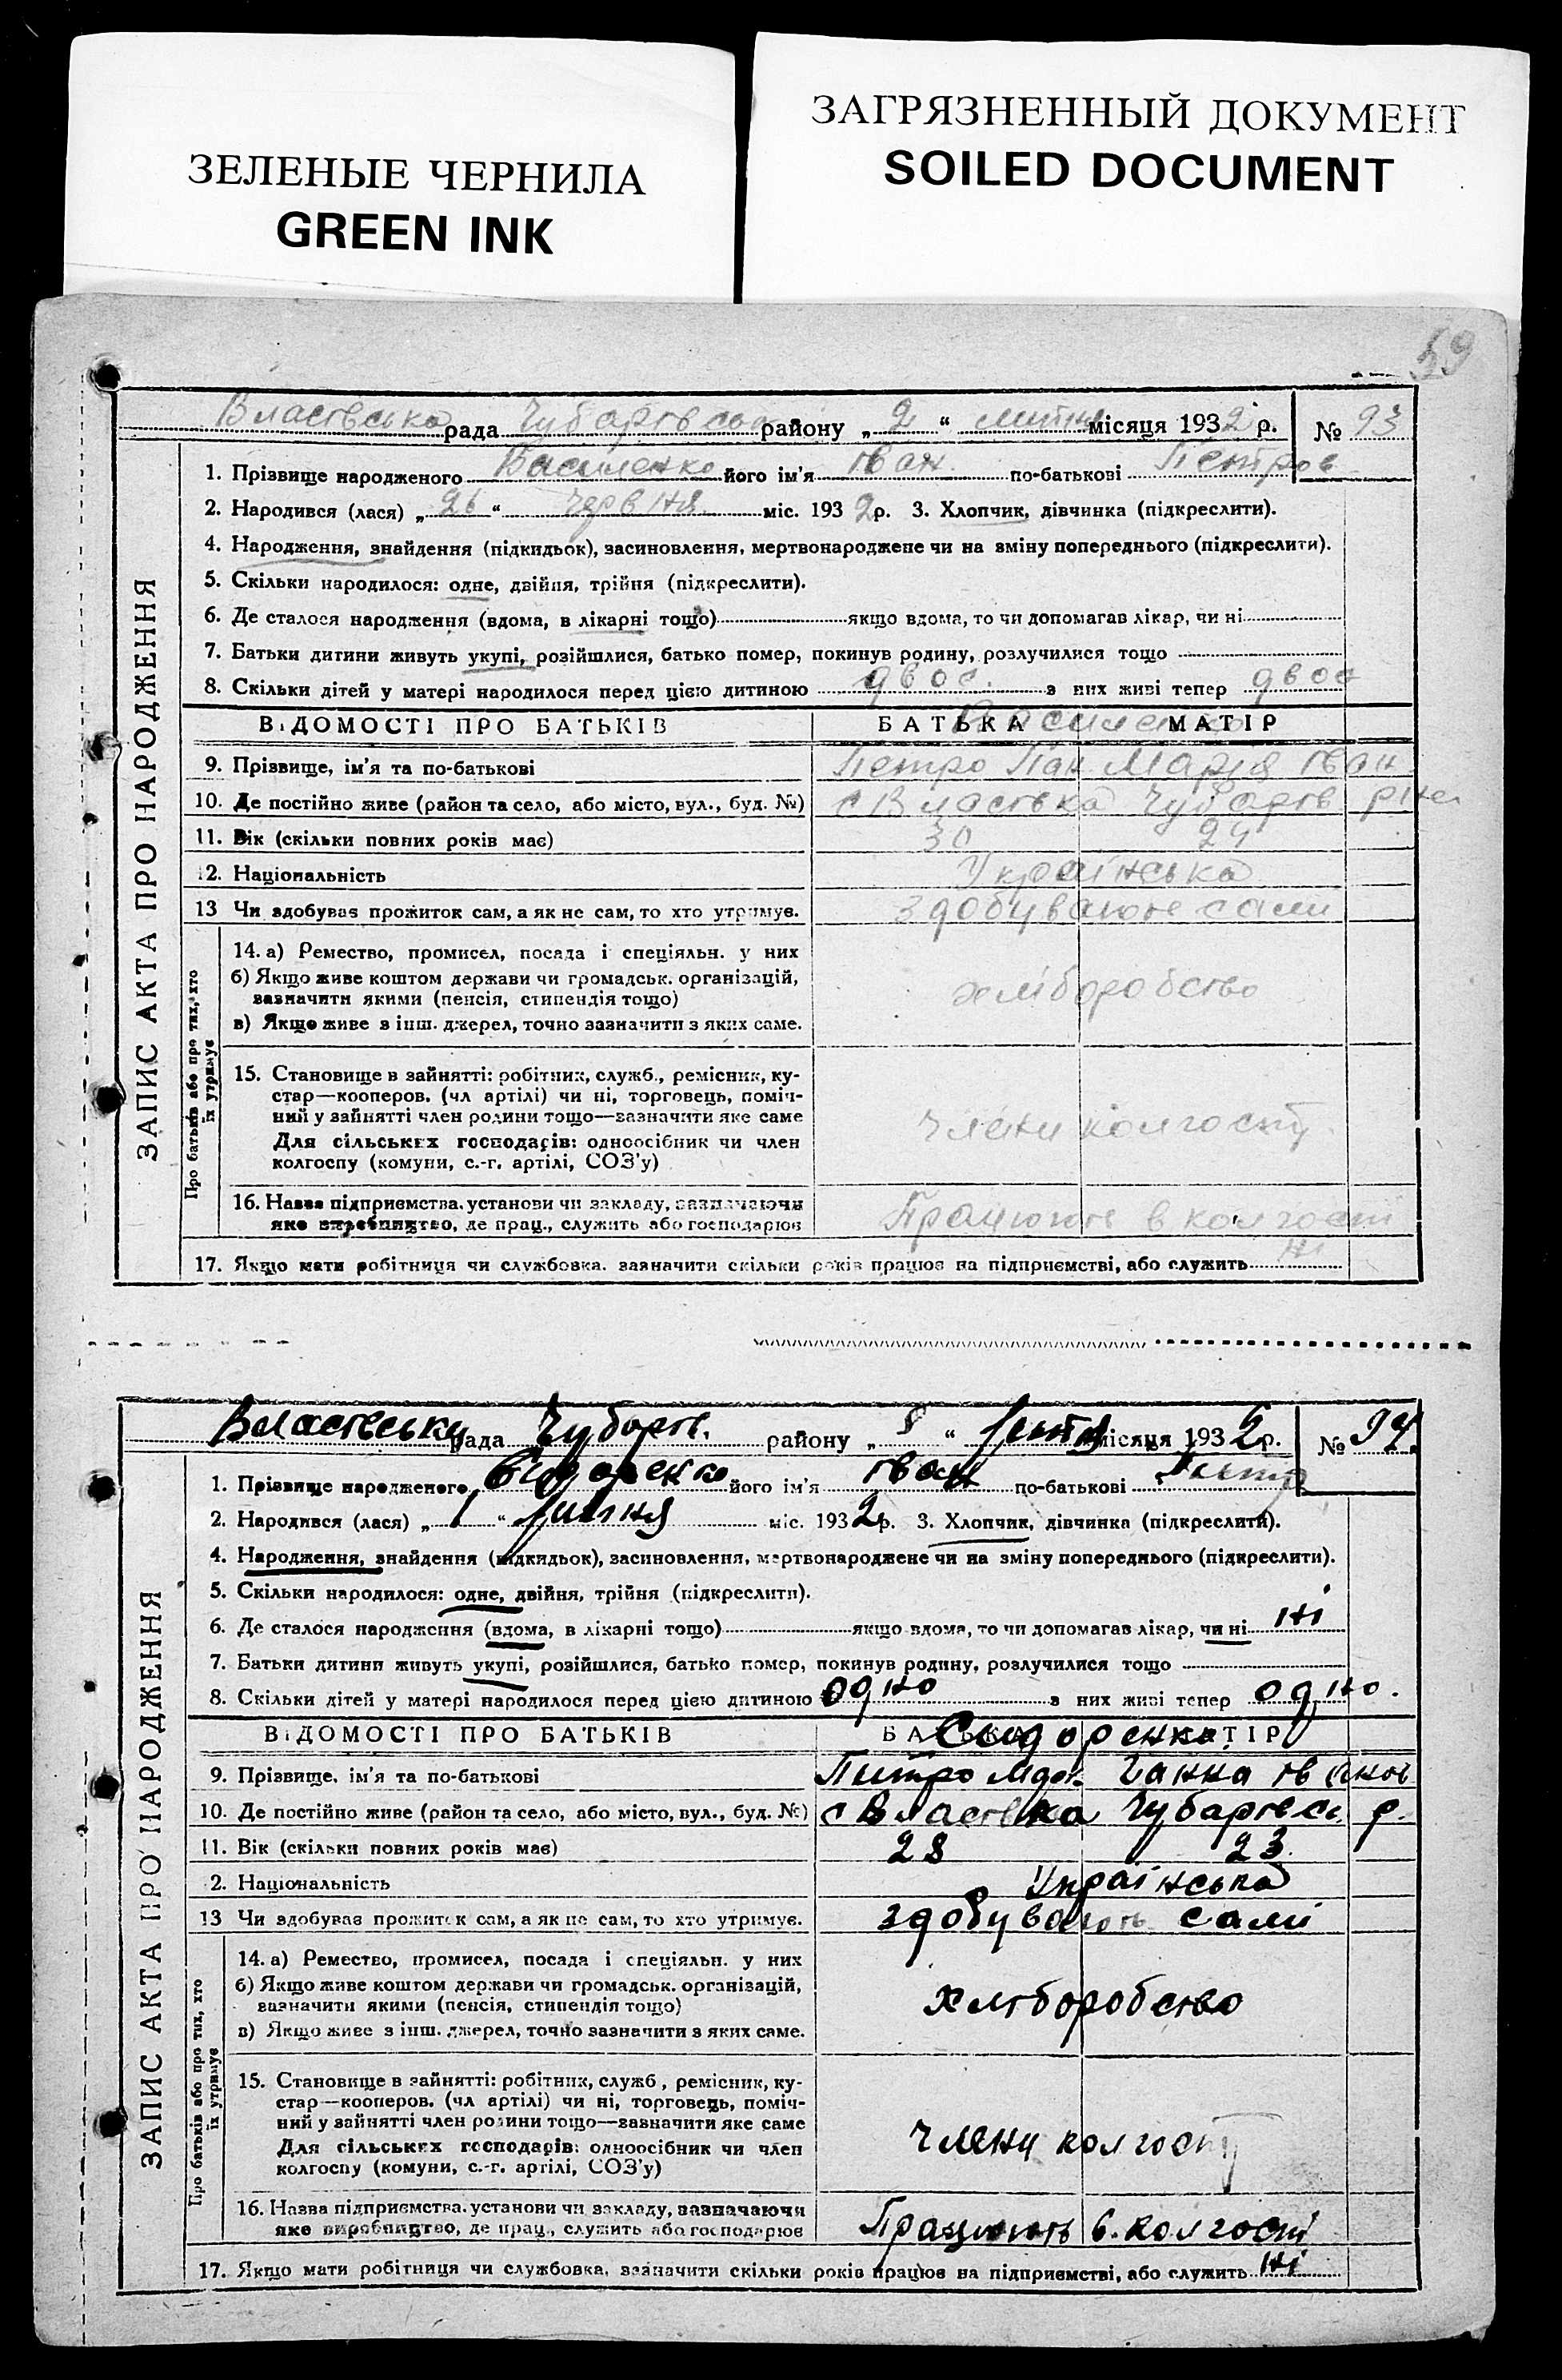 ЗЕЛЕНЫЕ ЧЕРНИЛА
GREEN INK
ЗАГРЯЗНЕННЫЙ ДОКУМЕНТ
SOILED DOCUMENT
59
ЗАПИС АКТА ПРО НАРОДЖЕННЯ
Властвська рада Чубарівськ району „ 2 “ липня місяця 1932 р. № 93
1. Прізвище народженого Василенко його ім'я Іван. по-батькові Петров
2. Народився (лася) „ 26 “ червня міс. 1932 р. 3. Хлопчик, дівчинка (підкреслити).
4. Народження, знайдення (підкидьок), засиновлення, мертвонароджене чи на зміну попереднього (підкреслити).
5. Скільки народилося: одне, двійня, трійня (підкреслити).
6. Де сталося народження (вдома, в лікарні тощо) якщо вдома, то чи допомагав лікар, чи ні
7. Батьки дитини живуть укупі, розійшлися, батько помер, покинув родину, розлучилися тощо
8. Скільки дітей у матері народилося перед цією дитиною двоє. з них живі тепер двоє
ВІДОМОСТІ ПРО БАТЬКІВ БАТЬКА МАТІР
Василенко
9. Прізвище, ім'я та по-батькові Петро Пан Марія Іван
10. Де постійно живе (район та село, або місто, вул., буд. №) с Властівка Чубарів р
11. Вік (скільки повних років має) 30 24
12. Національність Українська
13 Чи здобував прожиток сам, а як не сам, то хто утримує. здобувають сами
Про батьків або про тих, хто їх утримує
14. а) Ремество, промисел, посада і спеціяльн. у них
б) Якщо живе коштом держави чи громадськ. організацій,
зазначити якими (пенсія, стипендія тощо) хліборобство
в) Якщо живе з інш. джерел, точно зазначити з яких саме.
15. Становище в зайнятті: робітник, служб., ремісник, ку-
стар—кооперов. (чл артілі) чи ні, торговець, поміч-
ний у зайнятті член родини тощо—зазначити яке саме
Для сільських господарів: одноосібник чи член члени колгоспу
колгоспу (комуни, с.-г. артілі, СОЗ'у)
16. Назва підприємства, установи чи закладу, зазначаючи
яке виробництво, де прац., служить або господарює Працюють в колгоспі
17. Якщо мати робітниця чи службовка, зазначити скільки років працює на підприємстві, або служить ні
ЗАПИС АКТА ПРО НАРОДЖЕННЯ
Властвську рада Чубарів. району „ 8 “ липня місяця 1932 р. № 94
1. Прізвище народженого Сидоренко його ім'я Іван по-батькові Петр
2. Народився (лася) „ 1 “ липня міс. 1932 р. 3. Хлопчик, дівчинка (підкреслити).
4. Народження, знайдення (підкидьок), засиновлення, мертвонароджене чи на зміну попереднього (підкреслити).
5. Скільки народилося: одне, двійня, трійня (підкреслити).
6. Де сталося народження (вдома, в лікарні тощо) якщо вдома, то чи допомагав лікар, чи ні ні
7. Батьки дитини живуть укупі, розійшлися, батько помер, покинув родину, розлучилися тощо
8. Скільки дітей у матері народилося перед цією дитиною одно з них живі тепер одно.
ВІДОМОСТІ ПРО БАТЬКІВ БАТЬКА МАТІР
Сидоренко
9. Прізвище, ім'я та по-батькові Питро Ганна Іванов
10. Де постійно живе (район та село, або місто, вул., буд. №) с Властівка Чубарівсь р.
11. Вік (скільки повних років має) 28 23.
2. Національність Українська
13 Чи здобував прожиток сам, а як не сам, то хто утримує. здобувають самі
Про батьків або про тих, хто їх утримує
14. а) Ремество, промисел, посада і спеціяльн. у них
б) Якщо живе коштом держави чи громадськ. організацій,
зазначити якими (пенсія, стипендія тощо) хліборобство
в) Якщо живе з інш. джерел, точно зазначити з яких саме.
15. Становище в зайнятті: робітник, служб., ремісник, ку-
стар—кооперов. (чл артілі) чи ні, торговець, поміч-
ний у зайнятті член родини тощо—зазначити яке саме
Для сільських господарів: одноосібник чи член члени колгоспу
колгоспу (комуни, с.-г. артілі, СОЗ'у)
16. Назва підприємства, установи чи закладу, зазначаючи
яке виробництво, де прац., служить або господарює Працюють в. колгоспі
17. Якщо мати робітниця чи службовка, зазначити скільки років працює на підприємстві, або служить ні